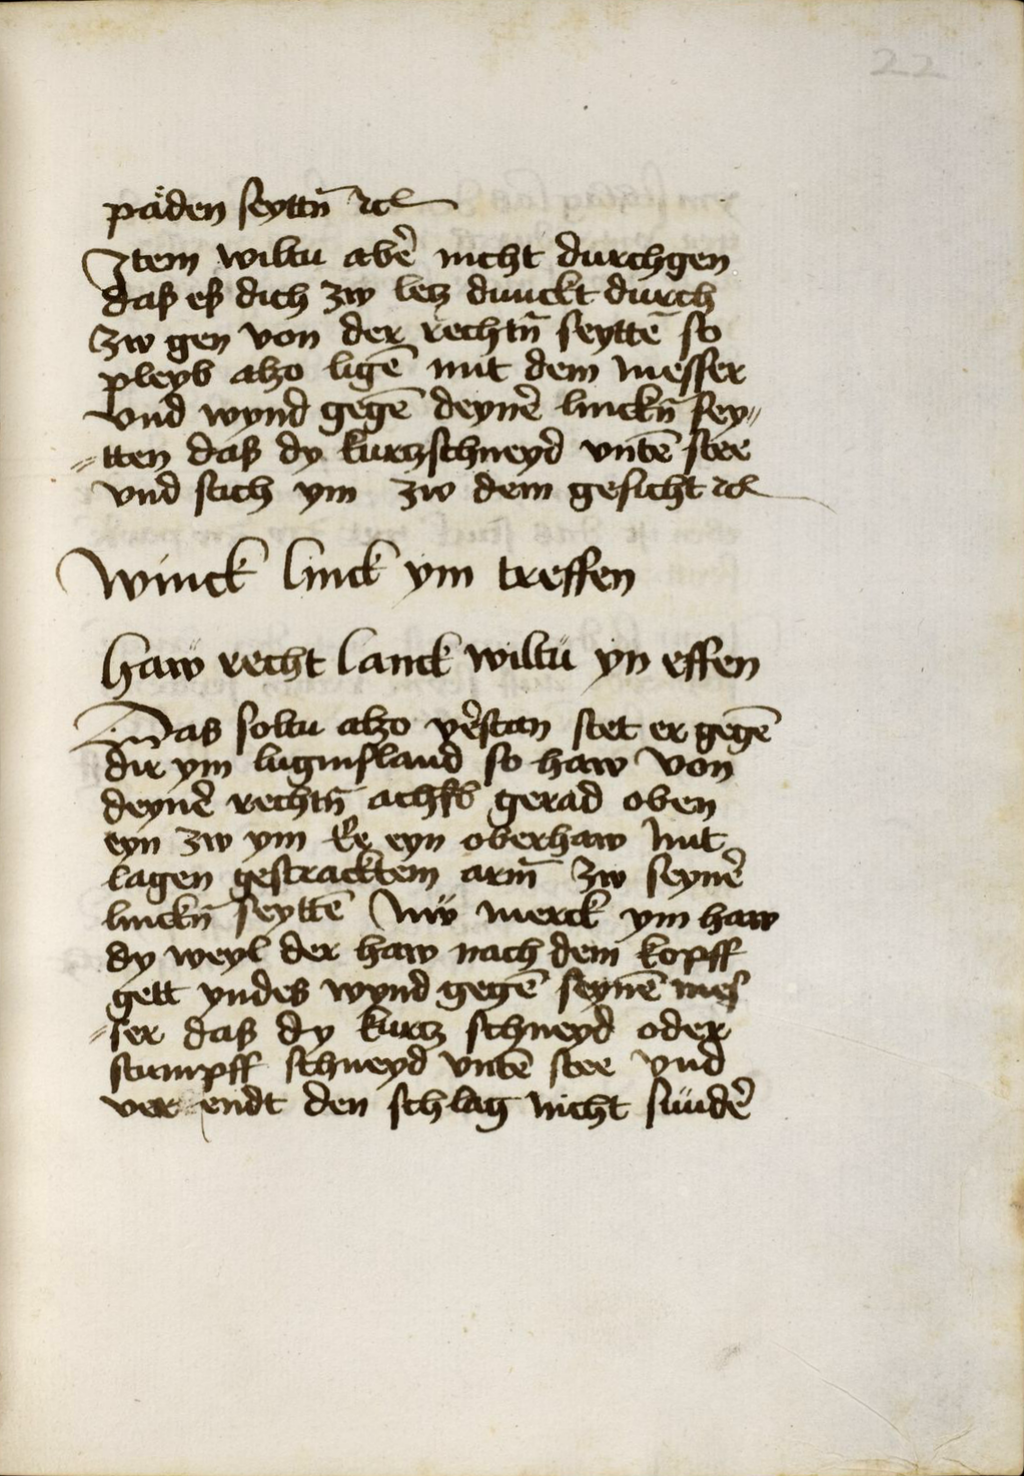 22
päden seyttn̄ ⁊c
Item wiltu abē nicht durchgen
daß eß dich zw letz dunckt durch
zw gen von der rechtn̄ seyttē so
pleyb alzo ligē mit dem messer
vnd wynd gegē deynē linckn̄ sey〃
〃tten daß dy kurtzschneyd vntē stee
vnd stich ym zw dem gesicht ⁊c
Winck linck ym treffen
haw recht lanck wiltu yn effen
Das soltu alzo vēstan stet er gegē
dir ym luginsland so haw von
deynē rechtn̄ achsß gerad oben
eyn zw ym eyn oberhaw mit
lagen gestracktem arm̄ zw seynē
linckn̄ seyttē Nw merck ym haw
dy weyl der haw nach dem kopff
gett yndes wynd gegē seynē mes
〃ser daß dy kurtz schneyd oder
stumpff schneyd vntē stee vnd
ver endt den schlag nicht sundē